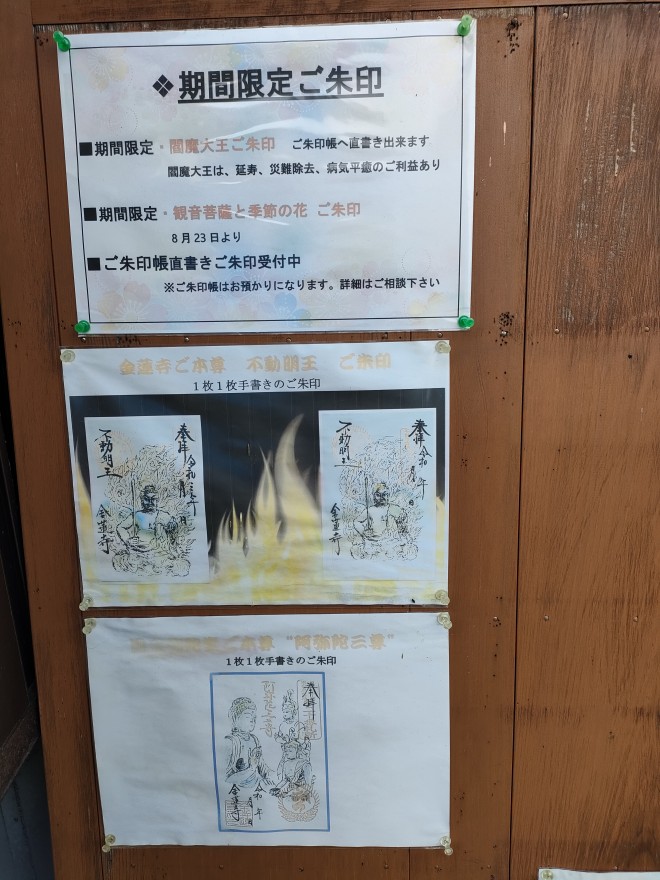 ❖期間限定ご朱印
■期間限定・閻魔大王ご朱印 ご朱印帳へ直書き出来ます
閻魔大王は、延寿、災難除去、病気平癒のご利益あり
■期間限定・観音菩薩と季節の花 ご朱印
8月23日より
■ご朱印帳直書きご朱印受付中
※ご朱印帳はお預かりになります。詳細はご相談下さい
金蓮寺ご本尊 不動明王 ご朱印
1枚1枚手書きのご朱印
奉拝 令和 年 月 日
不動明王
金蓮寺
奉拝 令和 年 月 日
不動明王
金蓮寺
ご本尊 "阿弥陀三尊"
1枚1枚手書きのご朱印
奉拝
阿弥陀三尊
令和 年 月 日
金蓮寺